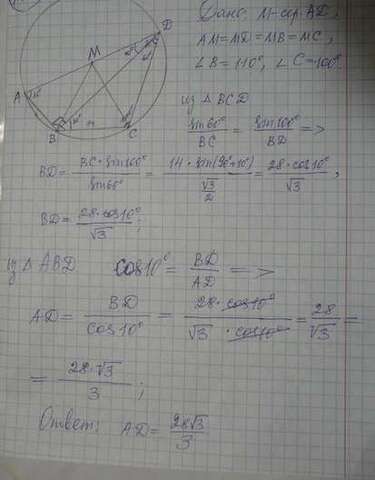 Дано: M-сер. AD,
AM=MD=MB=MC,
∠B=110°, ∠C=100°.
D
M
A
B
C
из △BCD
sin60°/BC = sin100°/BD =>
BD = BC·sin100°/sin60° = 14·sin(90°+10°)/(√3/2) = 28·cos10°/√3,
BD = 28·cos10°/√3;
из △ABD cos10° = BD/AD =>
AD = BD/cos10° = 28·cos10°/√3·cos10° = 28/√3 =
= 28·√3/3;
Ответ: AD = 28√3/3